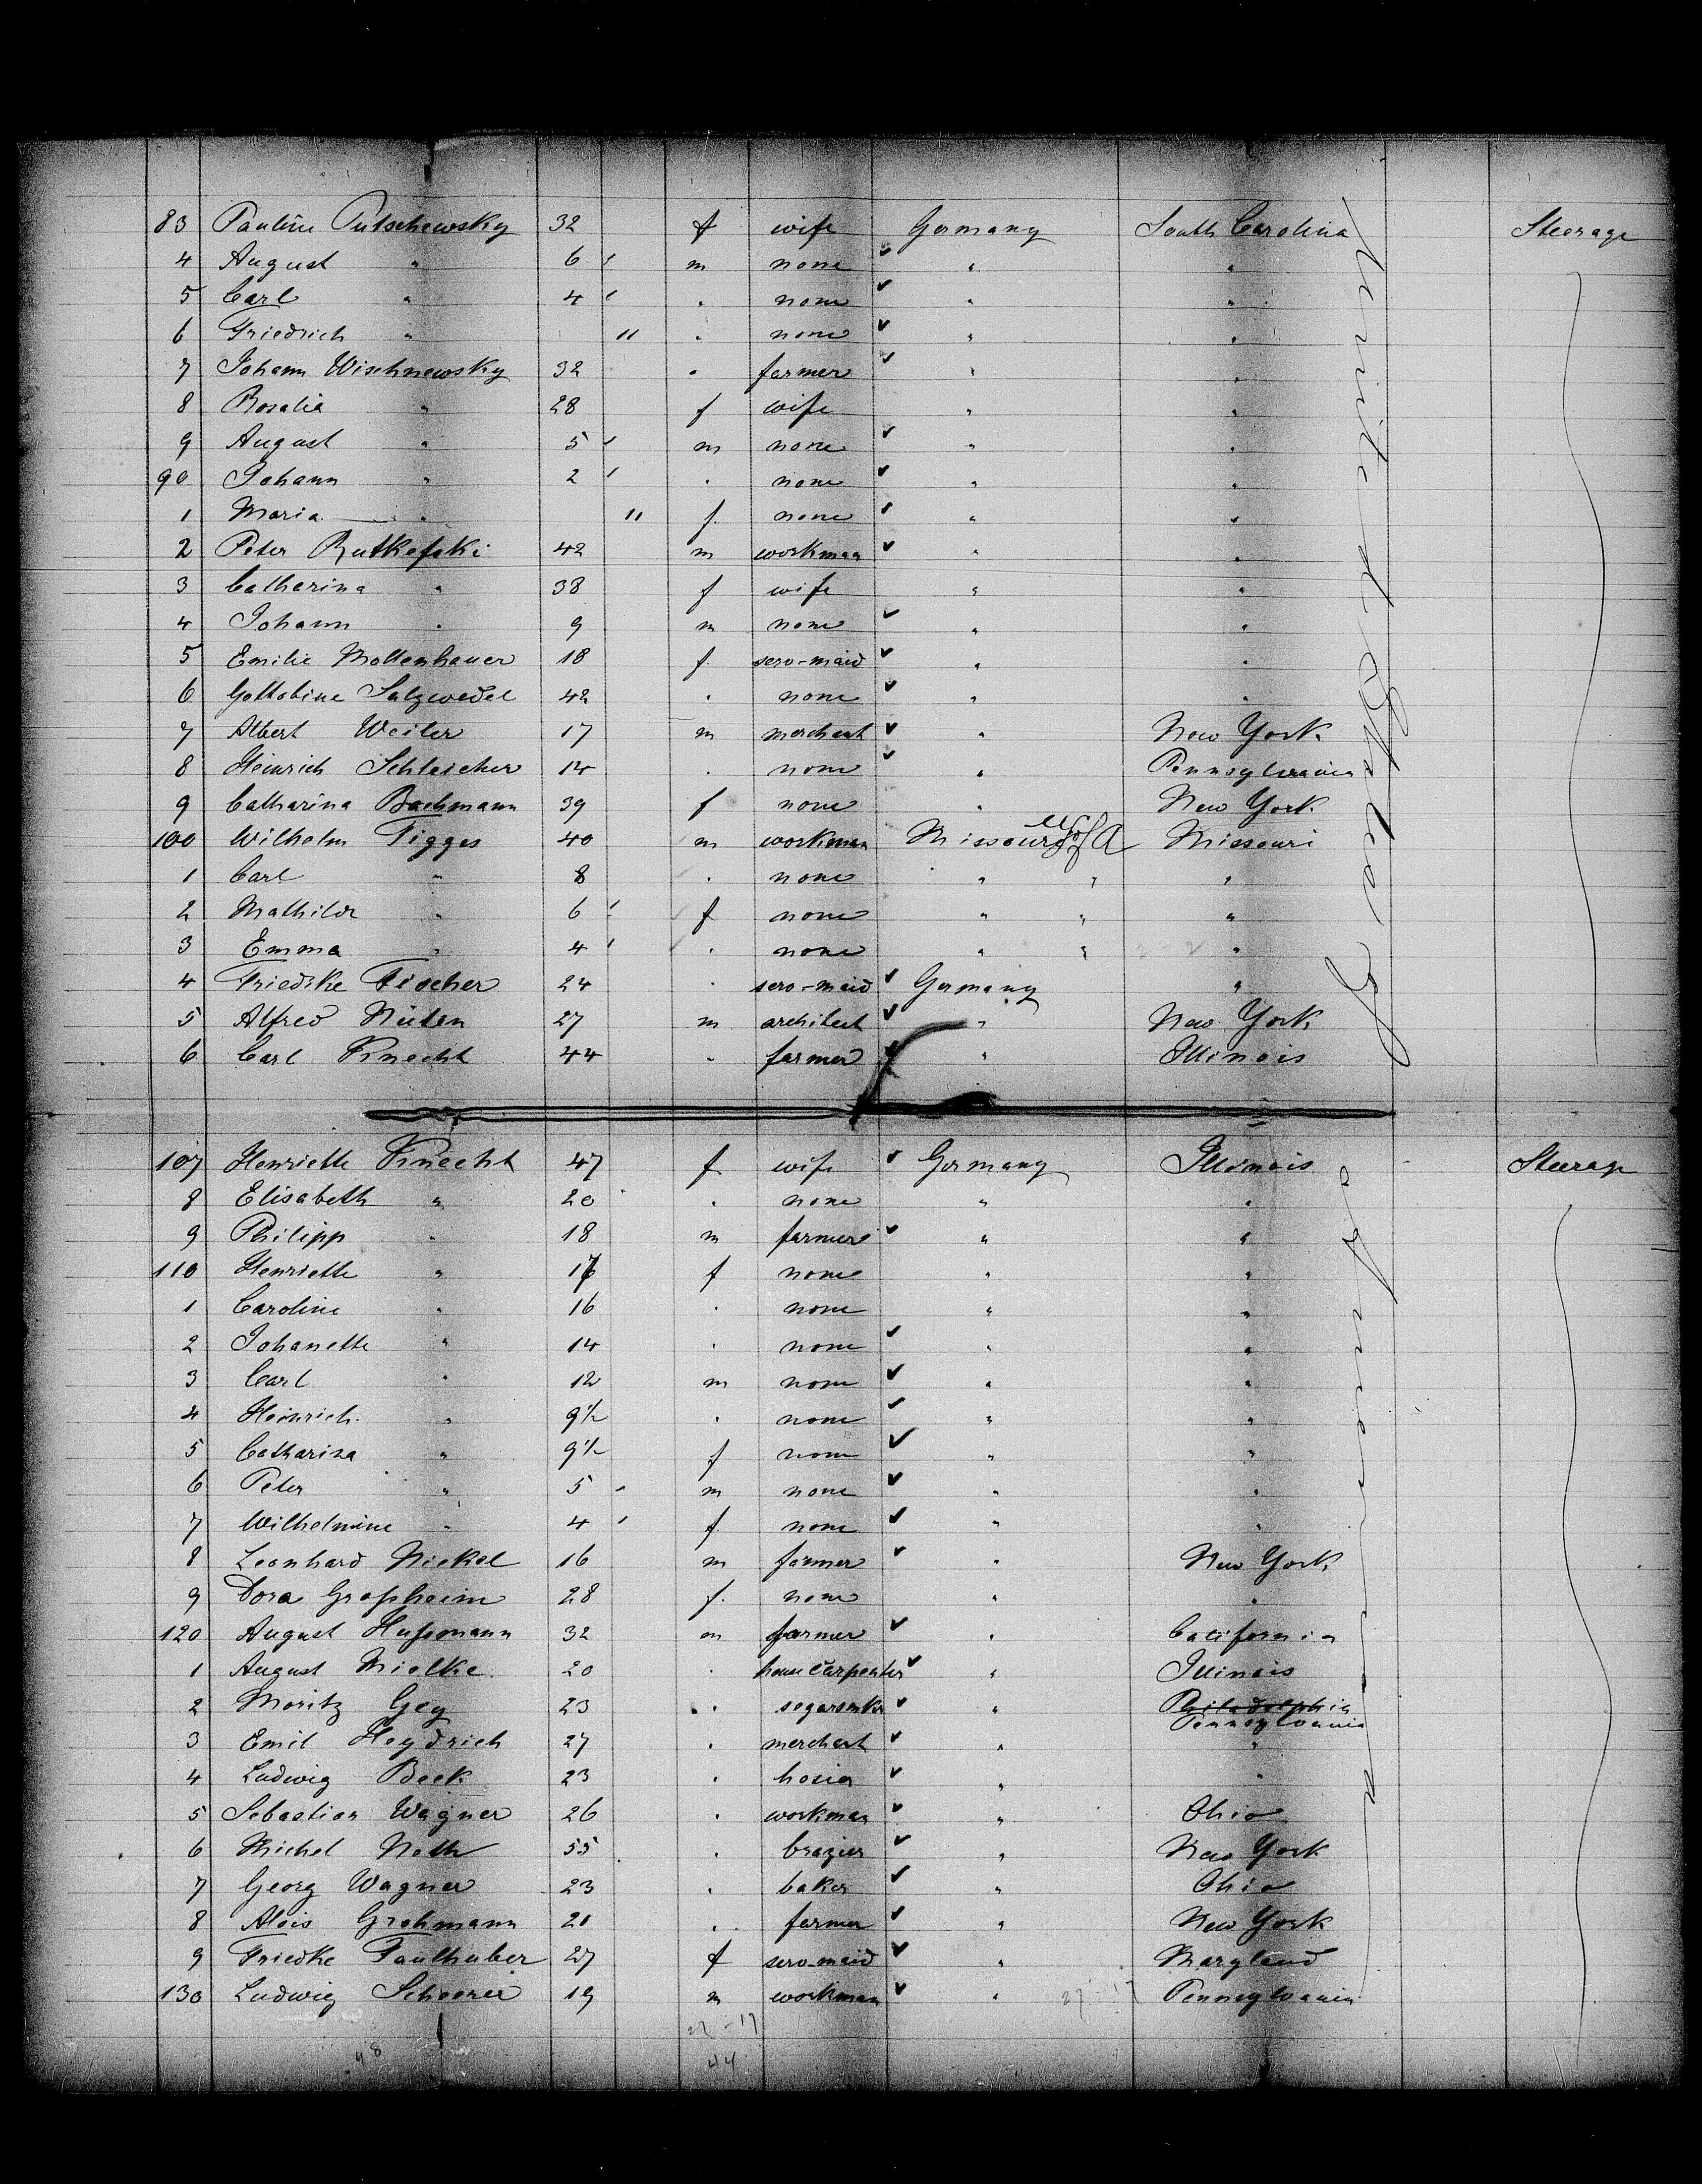 83 Pauline Putschewsky 32 f wife Germany South Carolina Steerage
4 August " 6 m none " "
5 Carl " 4 " none " "
6 Friedrich " 11 " none " "
7 Johann Wischnewsky 32 " farmer " "
8 Rosalia " 28 f wife " "
9 August " 5 m none " "
90 Johann " 2 " none " "
1 Maria " 11 f. none " "
2 Peter Rutkofski 42 m workman " "
3 Catharina " 38 f wife " "
4 Johann " 9 m none " "
5 Emilie Mollenhauer 18 f. serv-maid " "
6 Gottobine Salzwedel 42 " none " "
7 Albert Weiler 17 m merchant " New York
8 Heinrich Schleicher 14 " none " Pennsylvania
9 Catharina Bachmann 39 f none " New York
100 Wilhelm Tigges 40 m workman Missouri U S of A Missouri
1 Carl " 8 " none " " "
2 Mathilde " 6 f none " " "
3 Emma " 4 " none " " "
4 Friedrike Fischer 24 " serv-maid Germany "
5 Alfred Nüten 27 m architect " New York
6 Carl Knecht 44 " farmer " Illinois
United States
107 Henriette Knecht 47 f wife Germany Illinois Steerage
8 Elisabeth " 20 " none " "
9 Philipp " 18 m farmer " "
110 Henriette " 17 f none " "
1 Caroline " 16 " none " "
2 Johanette " 14 " none " "
3 Carl " 12 m none " "
4 Heinrich " 9½ " none " "
5 Catharina " 9½ f none " "
6 Peter " 5 m none " "
7 Wilhelmine " 4 f none " "
8 Leonhard Nickel 16 m farmer " New York
9 Dora Grossheim 28 f. none " "
120 August Hussmann 32 m farmer " California
1 August Mielke 20 " house Carpenter " Illinois
2 Moritz Gey 23 " segarmkr " Philadelphia
Pennsylvania
3 Emil Heydrich 27 " merchant " "
4 Ludwig Beck 23 " hosier " "
5 Sebastian Wagner 26 " workman " Ohio
6 Michel Noth 55 " brazier " New York
7 Georg Wagner 23 " baker " Ohio
8 Alois Grohmann 21 " farmer " New York
9 Friedke Faulhuber 27 f serv-maid " Maryland
130 Ludwig Schoerer 19 m workman " 27-17 Pennsylvania
27-17
48 44